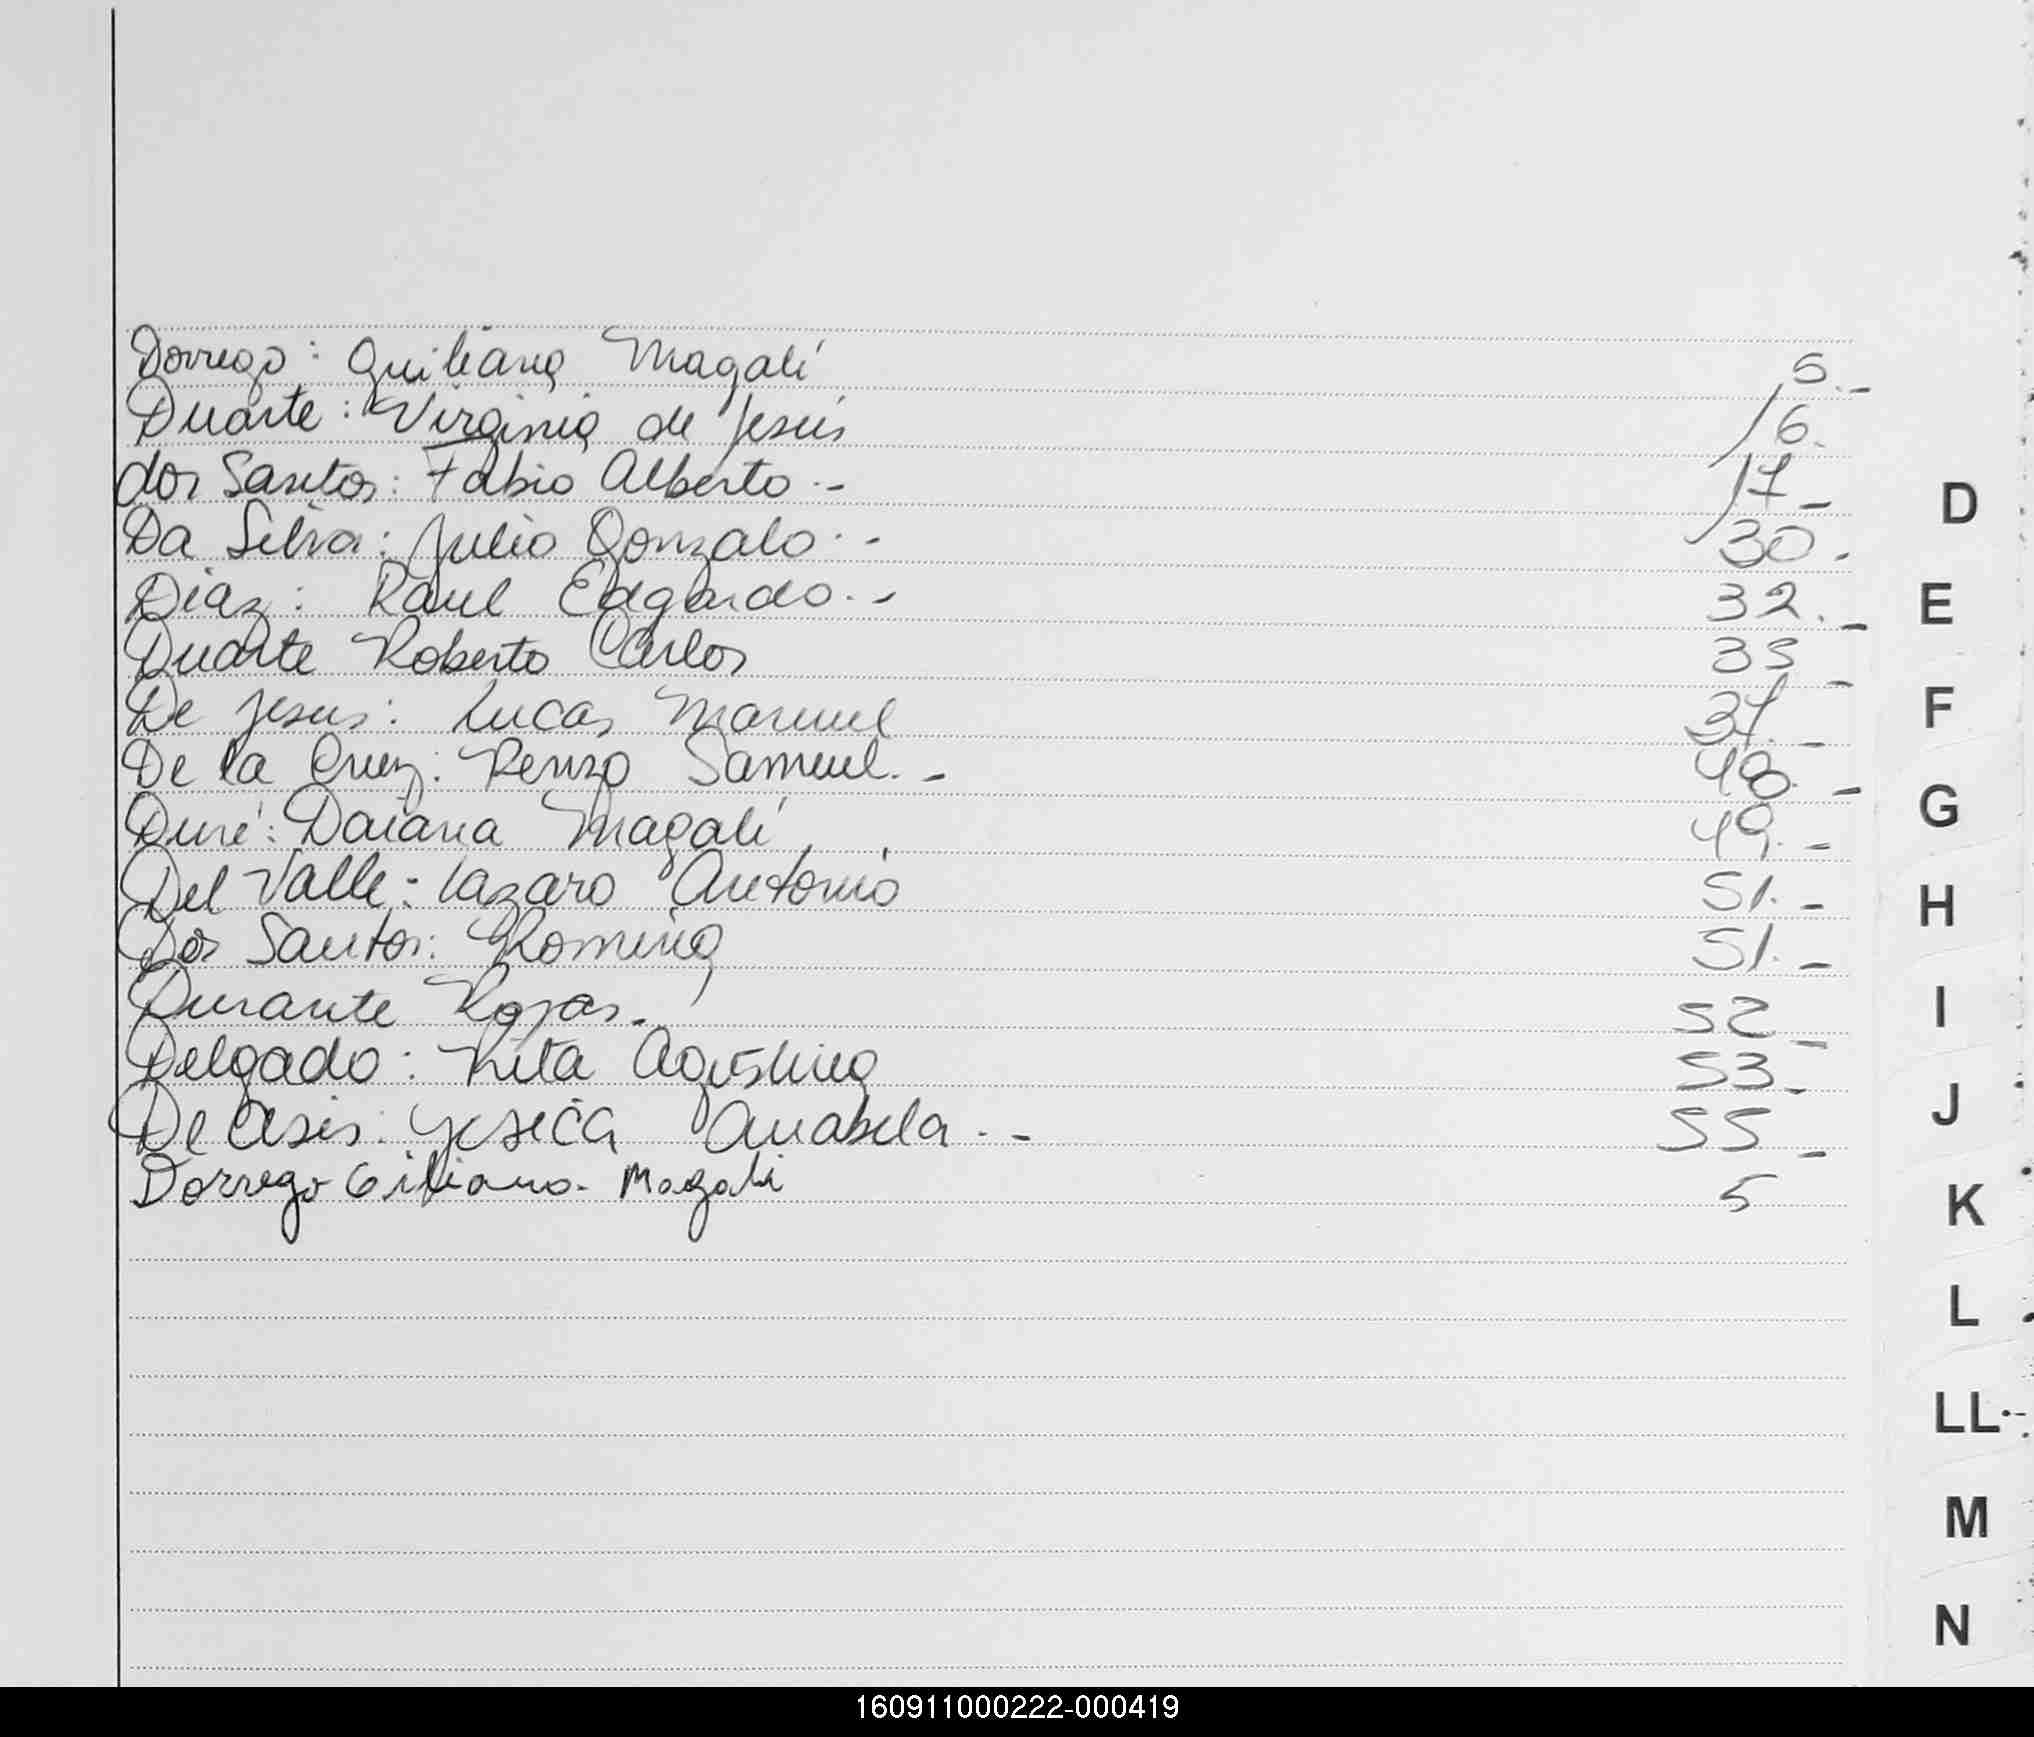 Dorrego: Guiliana Magalí 5.-
Duarte: Virginia de Jesús 16.
dos Santos: Fabio Alberto.- 17-
Da Silva: Julio Gonzalo.- 30.
Diaz: Raul Edgardo.- 32.-
Duarte Roberto Carlos 33-
De Jesus: Lucas Manuel 37.-
De la Cruz: Renzo Samuel.- 48.-
Duré: Daiana Magalí 49.-
Del Valle: Lazaro Antonio 51.-
Dos Santos: Romina 51.-
Durante Rojas.- 52-
Delgado: Rita Agostina 53-
De Asis: Yesica Anabela.- 55-
Dorrego Giliana. Magali 5
D
E
F
G
H
I
J
K
L
LL
M
N
160911000222-000419